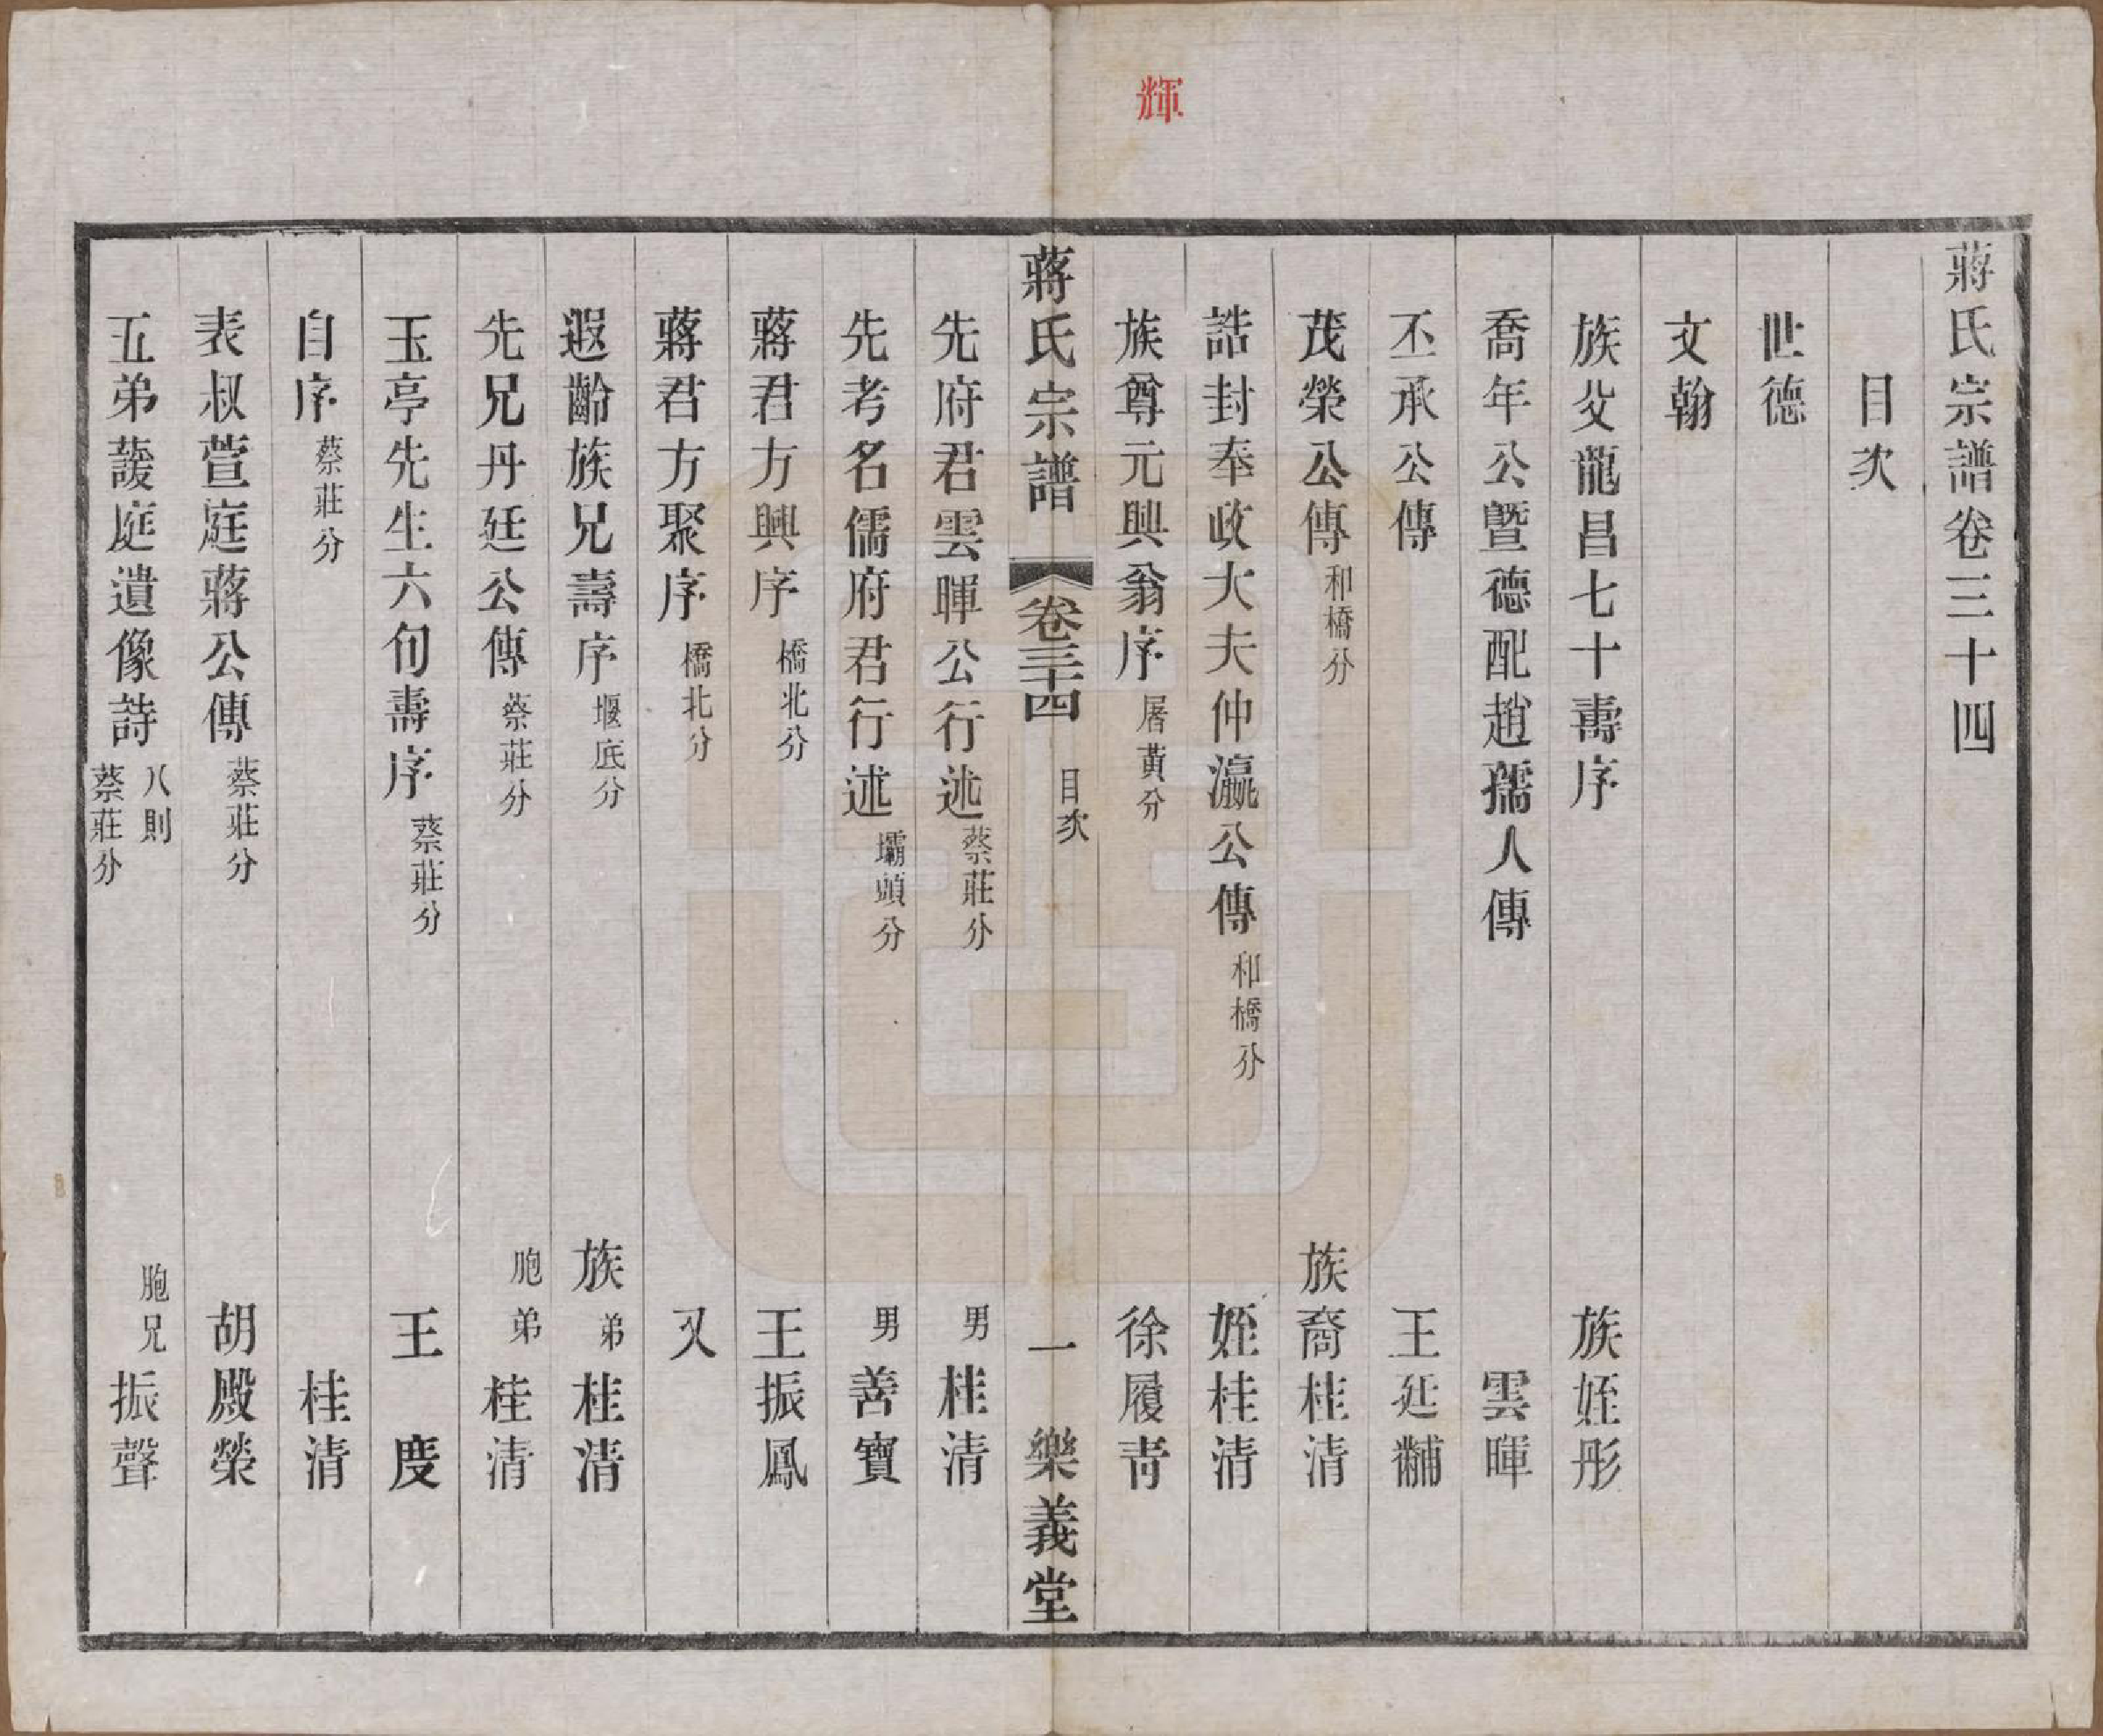 輝
蔣氏宗譜卷三十四
目次
世德
文翰
族父龍昌七十壽序 族姪彤
喬年公暨德配趙孺人傳 雲暉
丕承公傳 王廷黼
茂榮公傳 和橋分 族裔桂清
誥封奉政大夫仲瀛公傳 和橋分 姪桂清
族尊元興翁序 屠黃分 徐履青
蔣氏宗譜 卷三十四 目次 一 樂義堂
先府君雲暉公行述 蔡莊分 男桂清
先考名儒府君行述 壩頭分 男善寶
蔣君方興序 橋北分 王振鳳
蔣君方聚序 橋北分 又
遐齡族兄壽序 堰底分 族弟桂清
先兄丹廷公傳 蔡莊分 胞弟桂清
玉亭先生六旬壽序 蔡莊分 王度
自序 蔡莊分 桂清
表叔萱庭蔣公傳 蔡莊分 胡殿榮
五弟蘐庭遺像詩 八則 蔡莊分 胞兄振聲